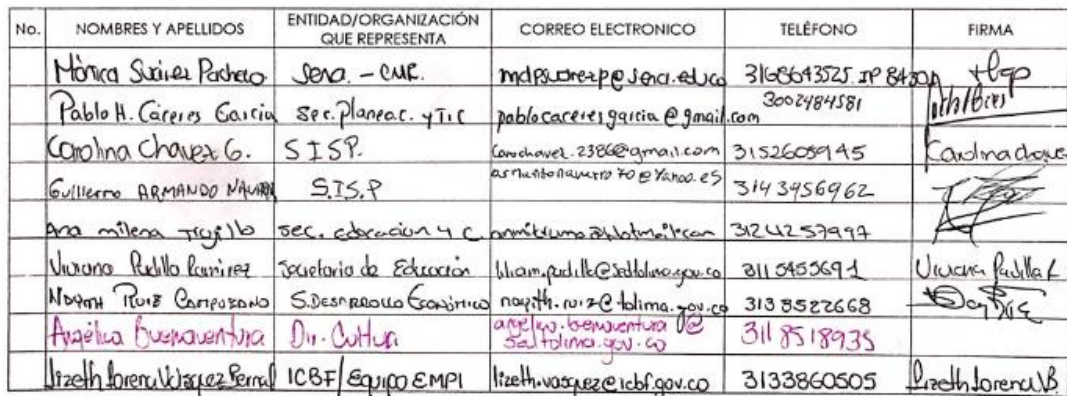 No. NOMBRES Y APELLIDOS ENTIDAD/ORGANIZACIÓN QUE REPRESENTA CORREO ELECTRONICO TELÉFONO FIRMA
Mónica Suárez Pacheco Sena. - CMR. 3168643525 IP
Pablo H. Cáceres Garcia Sec. Planeac. y TIC pablocaceresgarcia@gmail.com 3002484581
Carolina Chavez G. SISP. Carochavez.2386@gmail.com 3152605945 Carolina Chavez
Guillermo ARMANDO S.I.S.P armandonavarro70@Yahoo.es 3143956962
Ana milena Trujillo Sec. educacion y C. 3124257997
Viviana Padilla Ramirez Secretaria de Educación 3115455691 Viviana Padilla
Ruiz Camposano S. Desarrollo Económico 3138522668
Angélica Buenaventura Dir. Cultura angelica.buenaventura@
3118518935
lizeth lorena Vasquez Bernal ICBF/Equipo EMPI lizeth.vasquez@icbf.gov.co 3133860505 Lizeth lorena VB.